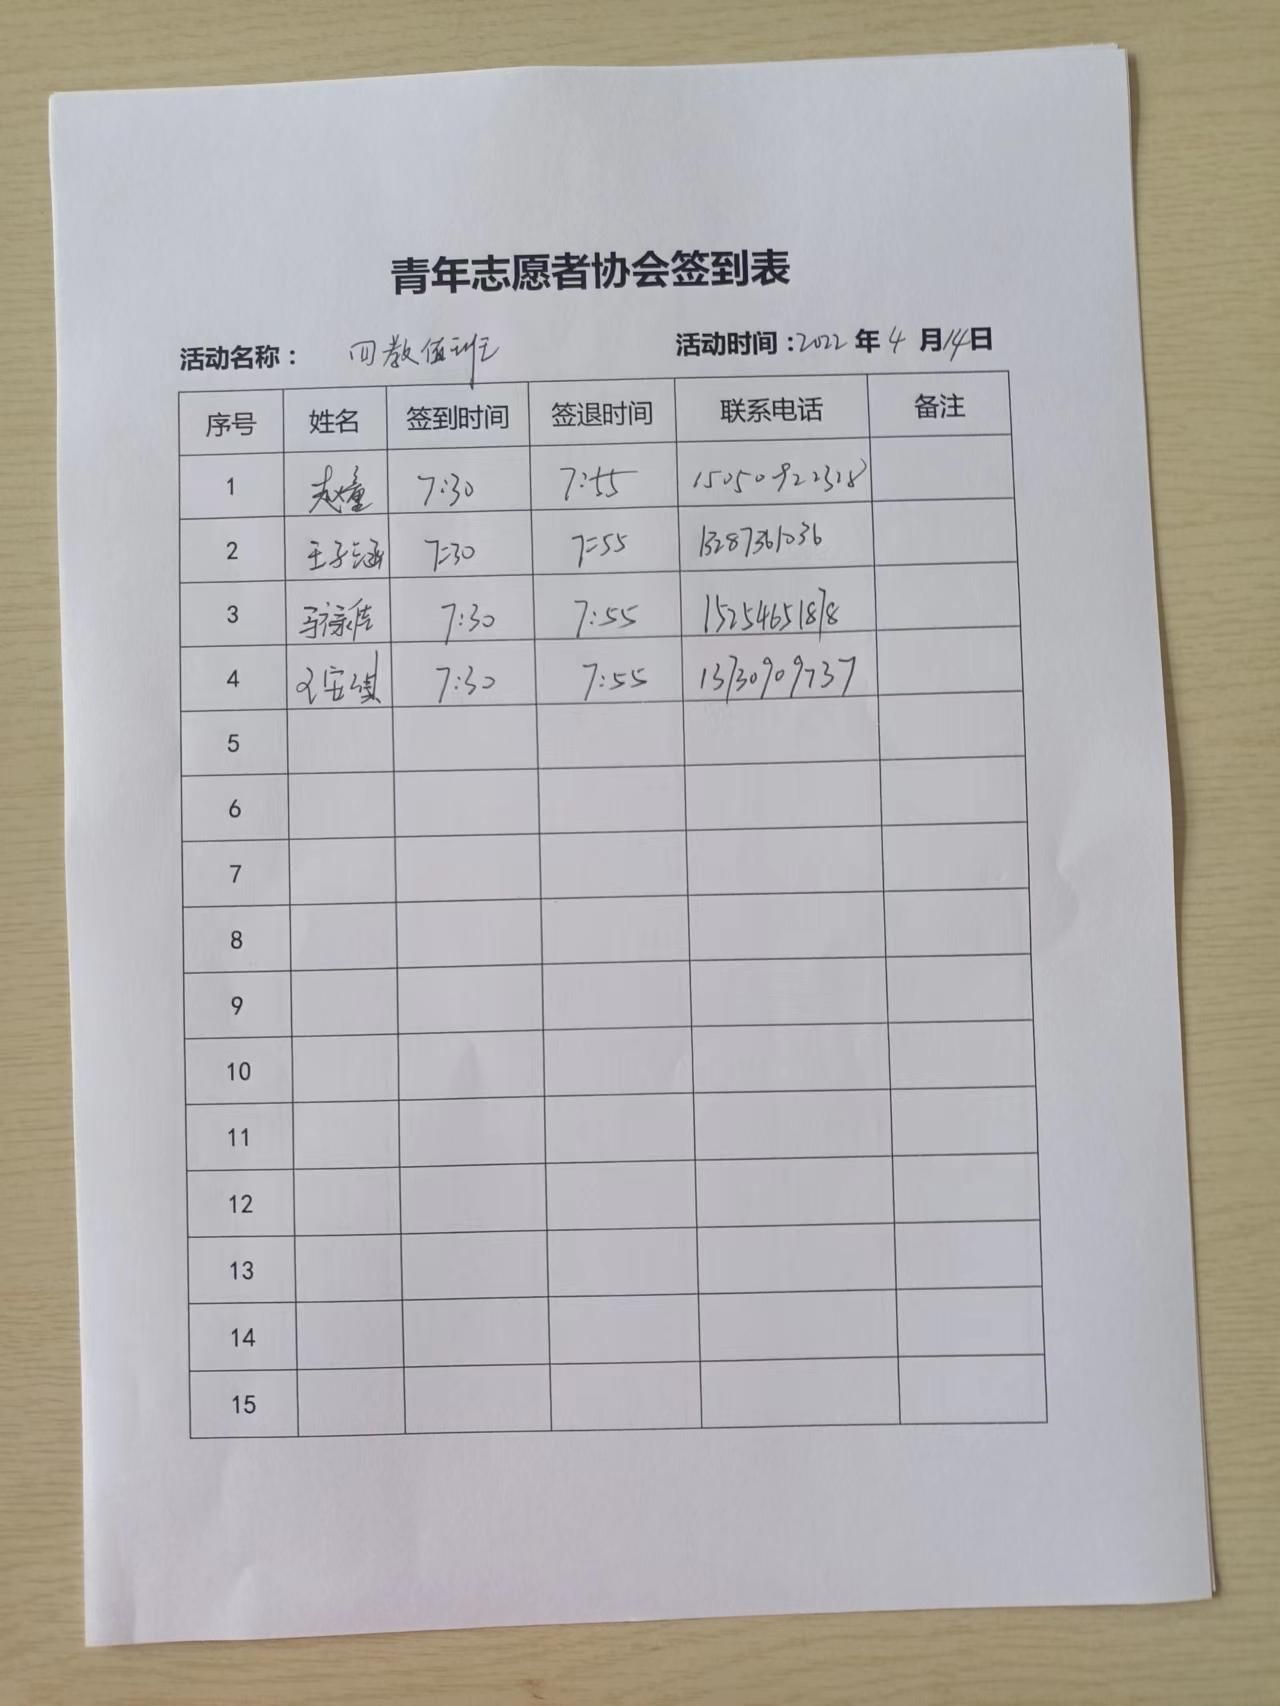 青年志愿者协会签到表
活动名称： 四教值班 活动时间：2022 年 4 月 14 日
序号 姓名 签到时间 签退时间 联系电话 备注
1 赵童 7:30 7:55 15050922328
2 王子涵 7:30 7:55 13287361036
3 7:30 7:55 15254651878
4 7:30 7:55 13730909737
5
6
7
8
9
10
11
12
13
14
15